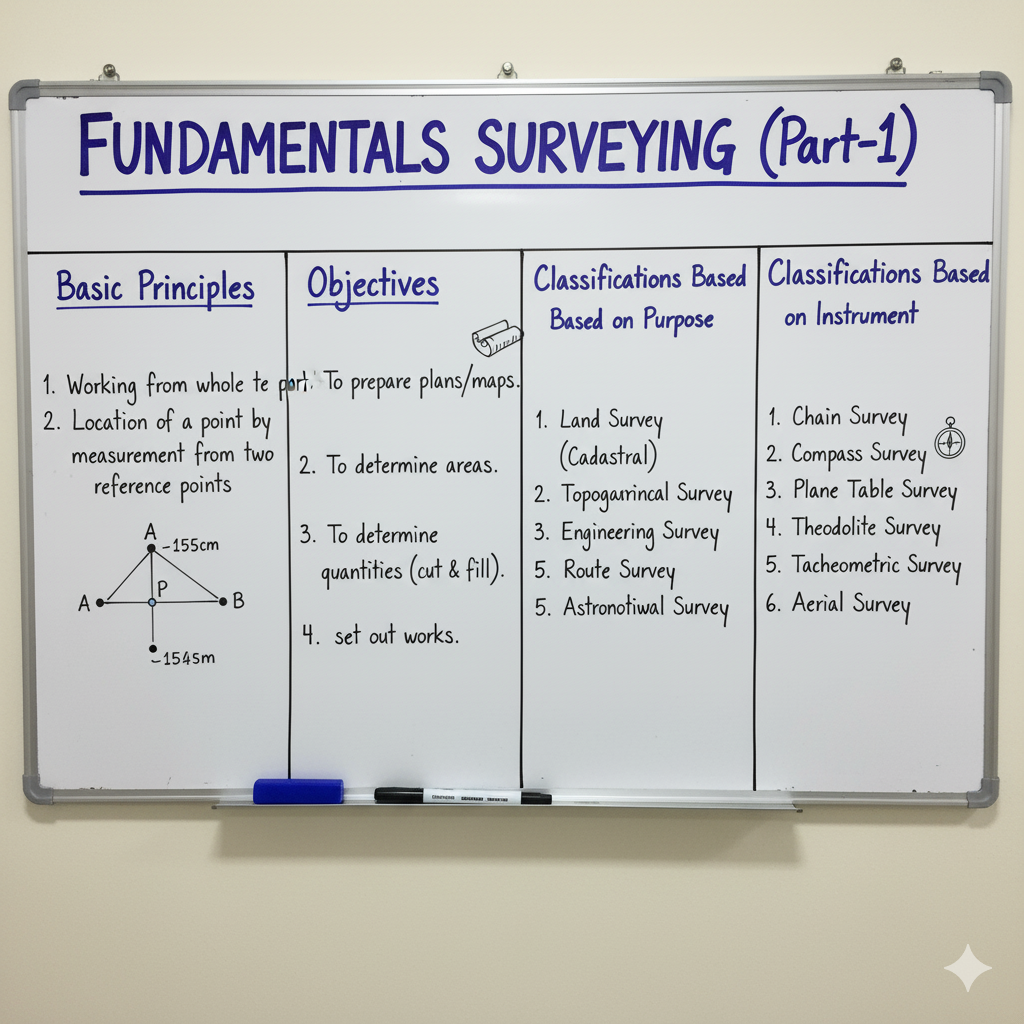 FUNDAMENTALS SURVEYING (Part-1)
Basic Principles
1. Working from whole te part.
2. Location of a point by
measurement from two
reference points
A
-155cm
P
A
B
-1545m
Objectives
To prepare plans/maps.
2. To determine areas.
3. To determine
quantities (cut & fill).
4. set out works.
Classifications Based
Based on Purpose
1. Land Survey
(Cadastral)
2. Topogarrincal Survey
3. Engineering Survey
5. Route Survey
5. Astronotiwal Survey
Classifications Based
on Instrument
1. Chain Survey
2. Compass Survey
3. Plane Table Survey
4. Theodolite Survey
5. Tacheometric Survey
6. Aerial Survey